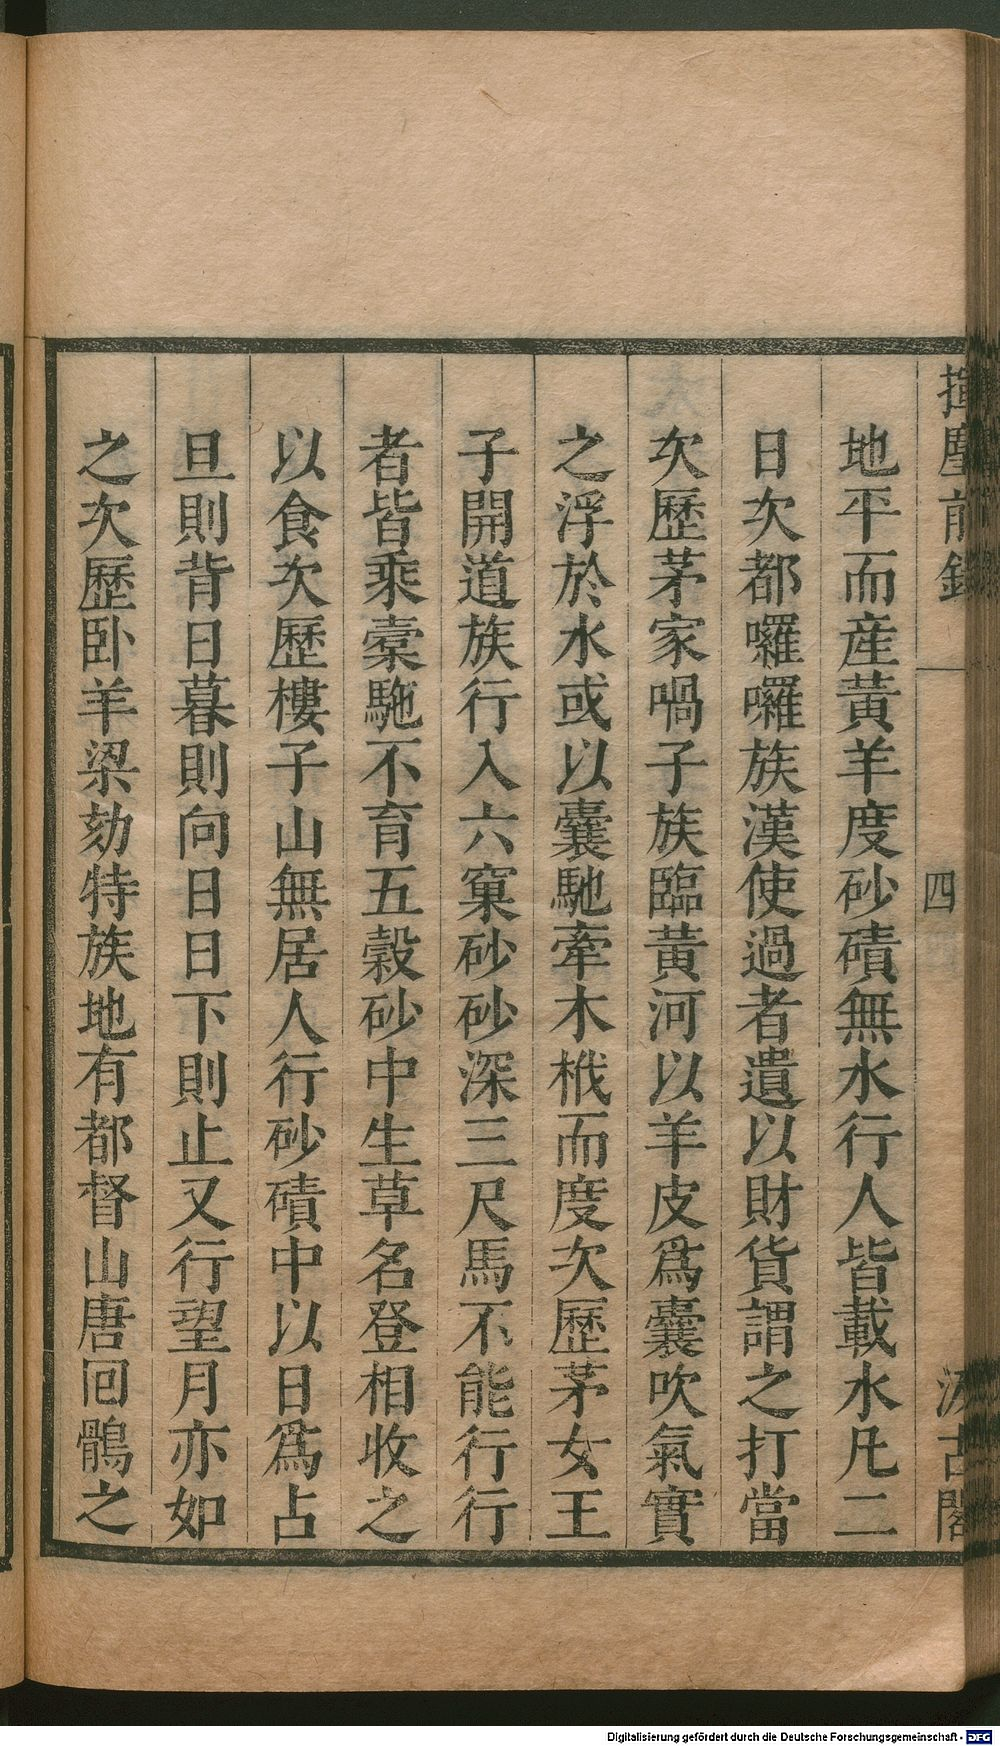 揮塵前錄
四
汲古閣
地平而産黃羊度砂磧無水行人皆載水凡二
日次都囉囉族漢使過者遺以財貨謂之打當
次歷茅家喎子族臨黃河以羊皮爲囊吹氣實
之浮於水或以囊馳牽木栰而度次歷茅女王
子開道族行入六窠砂砂深三尺馬不能行行
者皆乘橐駞不育五穀砂中生草名登相收之
以食次歷樓子山無居人行砂磧中以日爲占
旦則背日暮則向日日下則止又行望月亦如
之次歷卧羊梁劾特族地有都督山唐囘鶻之
Digitalisierung gefördert durch die Deutsche Forschungsgemeinschaft - DFG